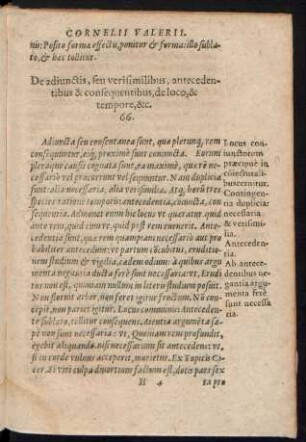 CORNELII VALERII.
nis: Posito forma effectu, ponitur & forma: illo subla-
to, & hæc tollitur.
De adiunctis, seu verisimilibus, anteceden-
tibus & consequentibus, de loco, &
tempore, &c.
66.
Adiuncta seu consentanea sunt, quæ plerunq, rem
consequuntur, eiq, proximè sunt coniuncta. Eorum
pleraque causis cognata sunt, ea maximè, quæ rē ne-
cessariò vel procurrunt vel sequuntur. Nam duplicia
sunt: alia necessaria, alia verisimilia. Atq, horū tres
species ratione temporis: antecedentia, coiuncta, con-
sequentia. Admonet enim hic locus vt quæratur, quid
ante rem, quid cum re, quid post rem euenerit. Ante-
cedentia sunt, quæ rem quampiam necessariò aut pro
babiliter antecedunt: vt partum concubitus, eruditio-
nem studium & vigiliæ, cædem odium: à quibus argu-
menta negantia ducta ferè sunt necessaria: vt, Erudi-
tus non est, quoniam nullum in literis posuit studium.
Non floruit arbor, non feret igitur fructum. Nō con-
cepit, non pariet igitur. Locus communis: Anteceden-
te sublato, tollitur consequens. Aientia argumēta sæ-
pe non sunt necessaria: vt, Quoniam rem profundit,
egebit aliquando. nisi necessarium sit antecedens: vt,
si corde vulnus acceperit, morietur. Ex Topicis Ci-
cer. At viri culpa diuortium factum est, dotis pars ex
H 4
Locus con-
iunctorum
præcipuè in
coniecturali-
bus cernitur.
Contingen-
tia duplicia:
necessaria
& verisimi-
lia.
Anteceden-
tia.
Ab antece-
dentibus ne
gantia argu
menta ferè
sunt necessa
ria.